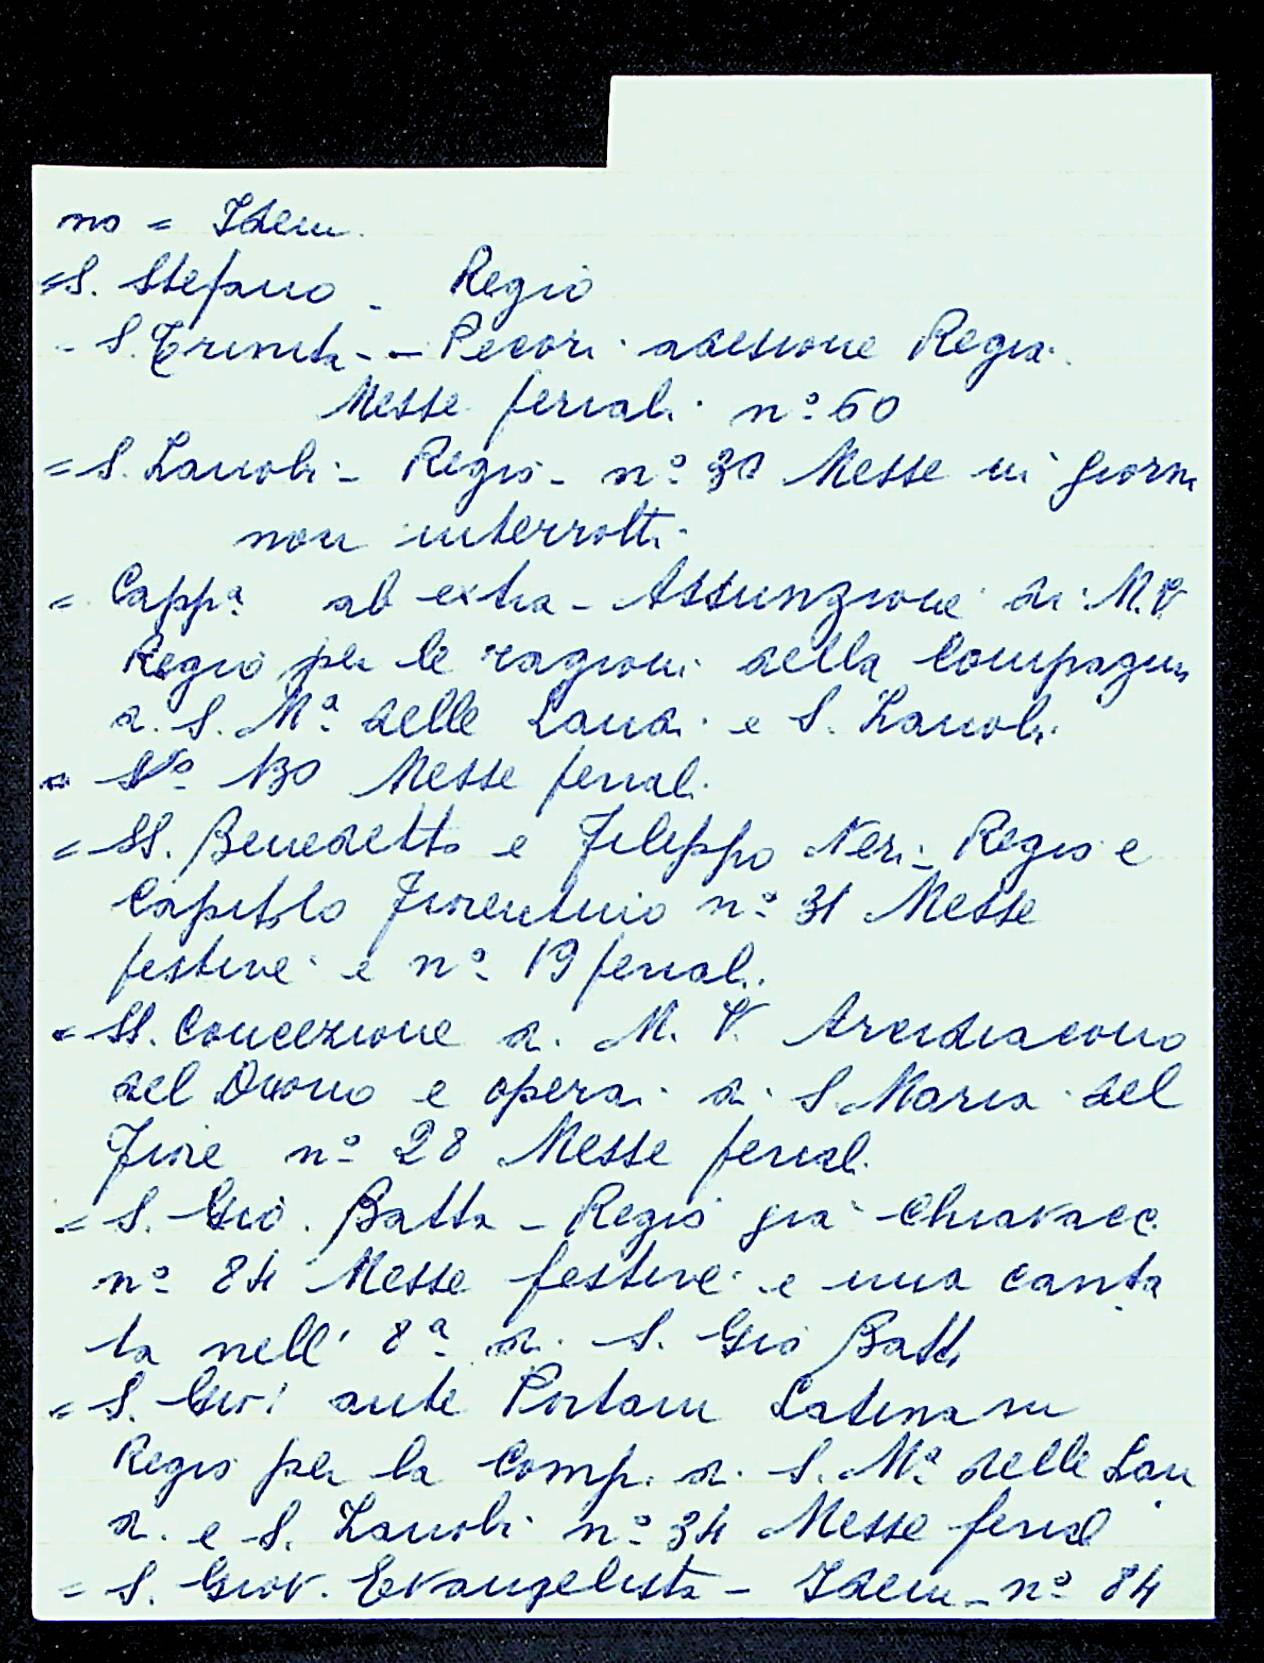 no = Idem.
= S. Stefano - Regio
- S. Trinità - - Pecori adesione Regia.
Messe feriali n° 60
= S. Zanobi - Regio - n° 30 Messe in giorni
non interrotti -
= Capp.a ab extra - Assunzione di M.V.
Regio per le ragioni della Compagnia
di S. M.a delle Laudi e S. Zanobi
= N° 130 Messe feriali.
= SS. Benedetto e Filippo Neri - Regio e
Capitolo Fiorentino n° 31 Messe
festive e n° 19 feriali.
= SS. Concezione di M. V. Arcidiacono
del Duomo e operai di S. Maria del
Fiore n° 28 Messe feriali.
= S. Gio. Batta - Regio già Chiavacc.
n° 84 Messe festive e una canta
ta nell' 8ª di S. Gio Batta
= S. Giov. ante Portam Latinam
Regio per la Comp. di S. M.a delle Lau
di e S. Zanobi n° 34 Messe feriali
= S. Giov. Evangelista - Idem - n° 84